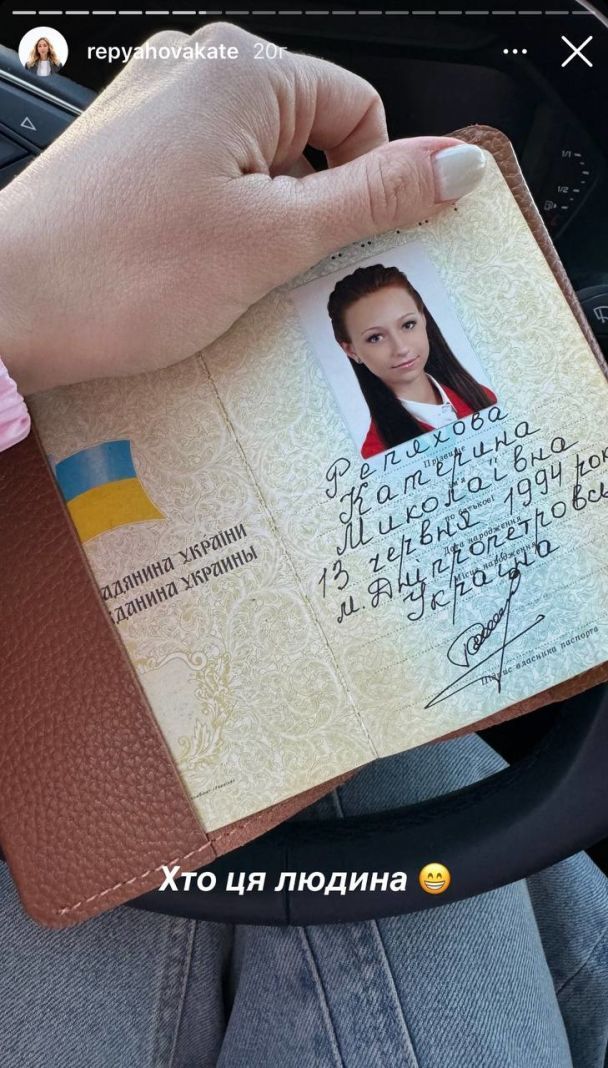 repyahovakate 20г
АДЯНИНА УКРАЇНИ
ЖДАНИНА УКРАИНЫ
Репяхова
Прізвище
Катерина
Миколаївна
По батькові
13 червня 1994 рок
Дата народження
м. Дніпропетровськ
Місце народження
Україна
Підпис власника паспорта
Хто ця людина 😁